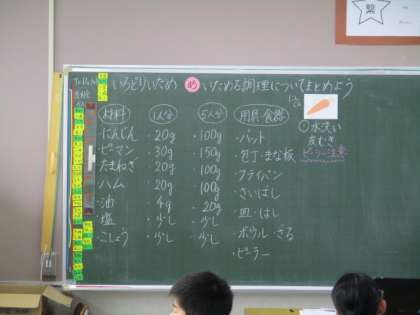 いろどりいため め いためる調理についてまとめよう
材料 1人分 5人分 用具・食器
・にんじん ・20g ・100g ・バット
・ピーマン ・30g ・150g ・包丁・まな板
・たまねぎ ・20g ・100g ・フライパン
・ハム ・20g ・100g ・さいばし
・油 ・4g ・20g ・皿・はし
・塩 ・少し ・少し ・ボウル・ざる
・こしょう ・少し ・少し ・ピーラー
にんじん
① 水洗い
皮むき
ピーラー注意